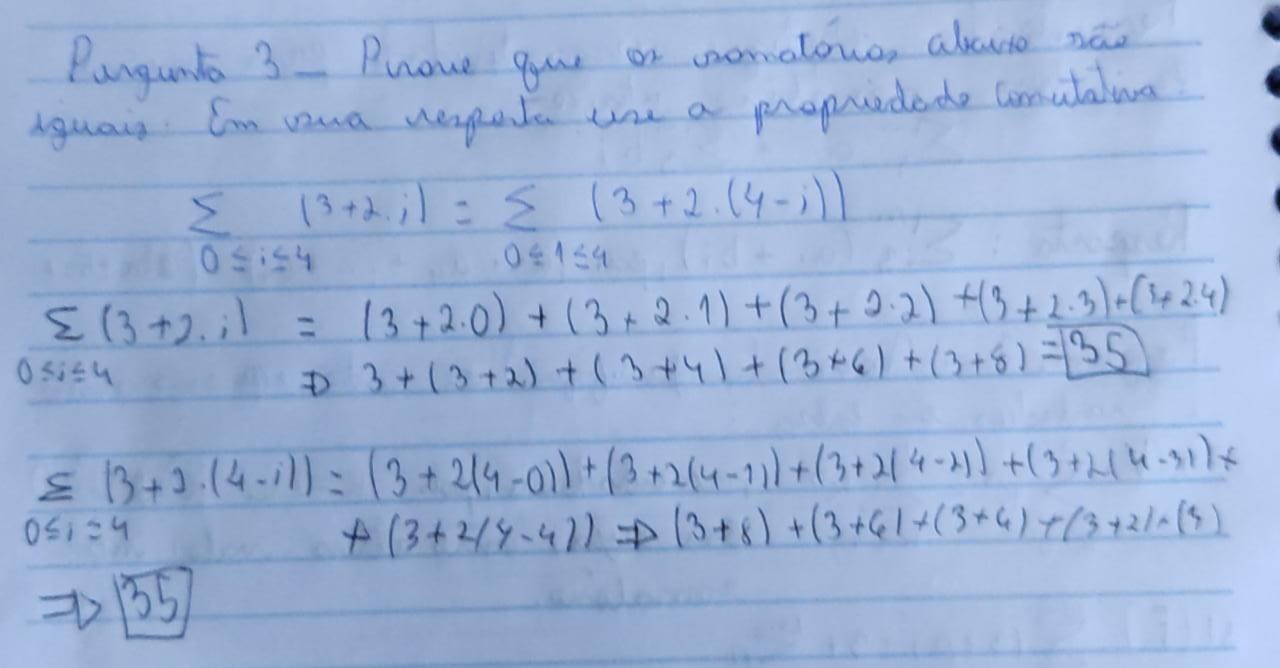 Pergunta 3 - Prove que os somatórios abaixo são
iguais. Em sua resposta use a propriedade comutativa.
Σ (3+2.i) = Σ (3+2.(4-i))
0≤i≤4 0≤1≤4
Σ (3+2.i) = (3+2.0) + (3+2.1) + (3+2.2) + (3+2.3) + (3+2.4)
0≤i≤4 ⇒ 3+(3+2)+(3+4)+(3+6)+(3+8) = 35
Σ (3+2.(4-i)) = (3+2(4-0))+(3+2(4-1))+(3+2(4-2))+(3+2(4-3))+
0≤i≤4 + (3+2(4-4)) ⇒ (3+8)+(3+6)+(3+4)+(3+2)+(3)
⇒ 35